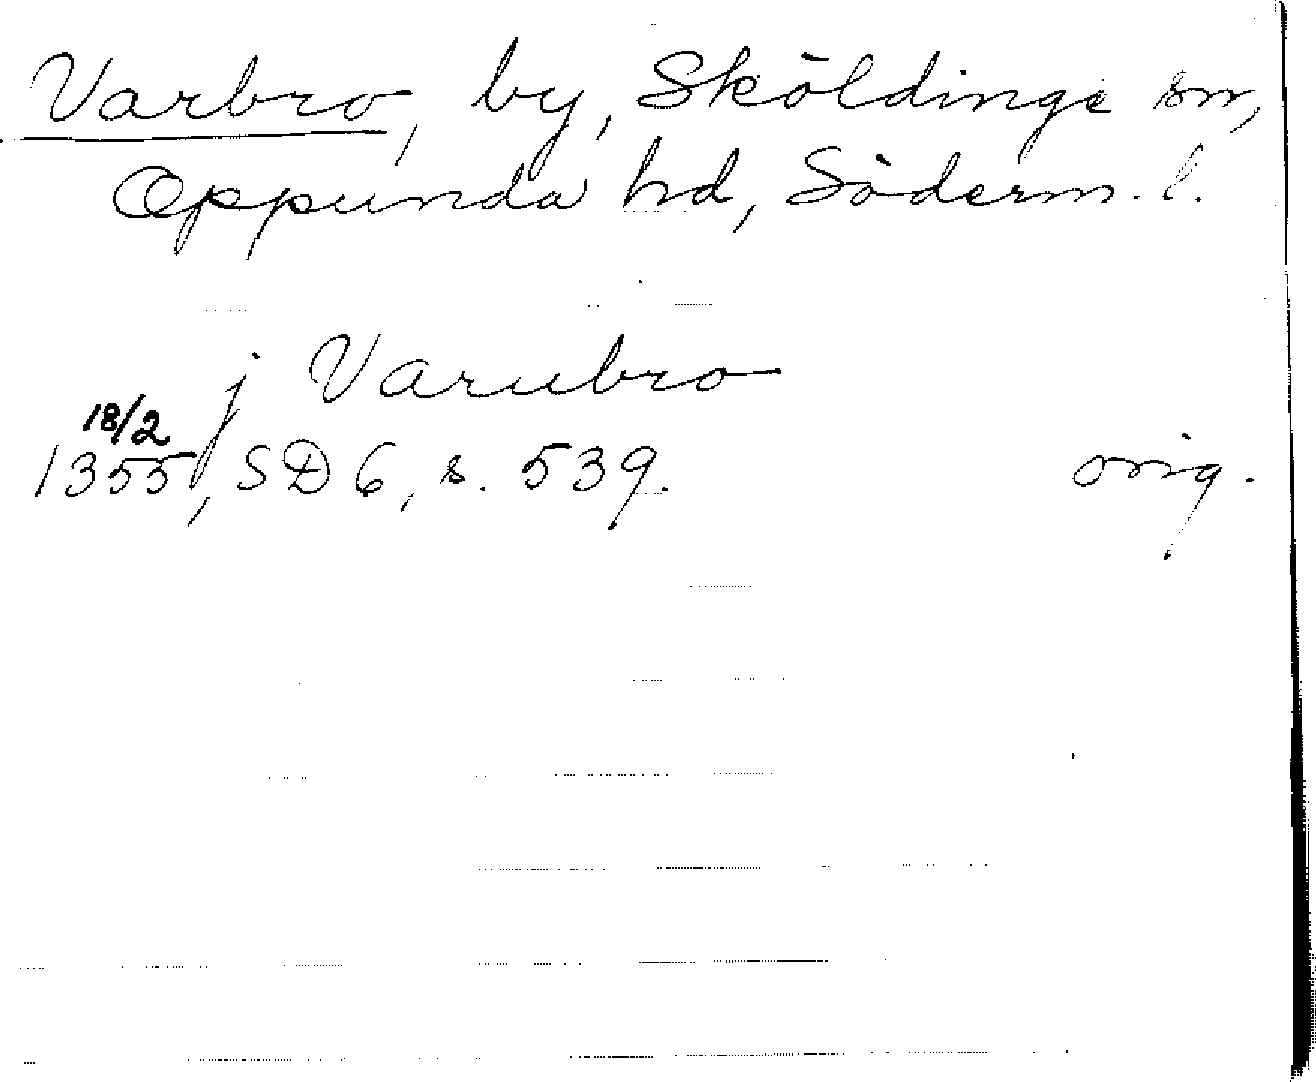 Varbro, by, Sköldinge sn,
Oppunda hd, Söderm. l.
j Varubro
18/2
1355, SD 6, s. 539. orig.